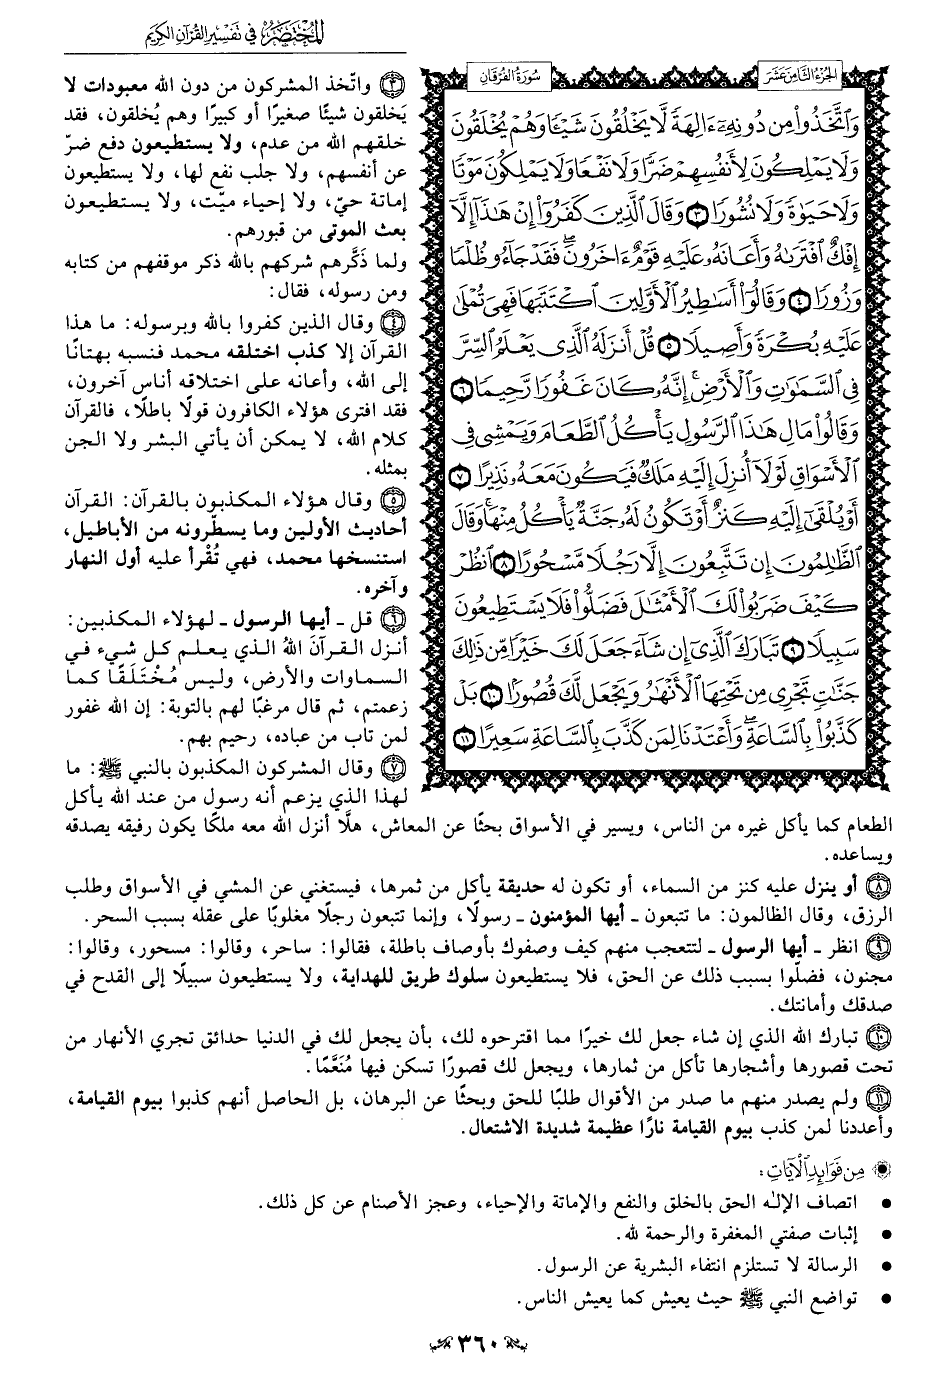 المختصر في تفسير القرآن الكريم
الجزء الثامن عشر
سورة الفرقان
وَٱتَّخَذُواْ مِن دُونِهِۦٓ ءَالِهَةٗ لَّا يَخۡلُقُونَ شَيۡـٔٗا وَهُمۡ يُخۡلَقُونَ
وَلَا يَمۡلِكُونَ لِأَنفُسِهِمۡ ضَرّٗا وَلَا نَفۡعٗا وَلَا يَمۡلِكُونَ مَوۡتٗا
وَلَا حَيَوٰةٗ وَلَا نُشُورٗا ٣ وَقَالَ ٱلَّذِينَ كَفَرُوٓاْ إِنۡ هَٰذَآ إِلَّآ
إِفۡكٌ ٱفۡتَرَىٰهُ وَأَعَانَهُۥ عَلَيۡهِ قَوۡمٌ ءَاخَرُونَۖ فَقَدۡ جَآءُو ظُلۡمٗا
وَزُورٗا ٤ وَقَالُوٓاْ أَسَٰطِيرُ ٱلۡأَوَّلِينَ ٱكۡتَتَبَهَا فَهِيَ تُمۡلَىٰ
عَلَيۡهِ بُكۡرَةٗ وَأَصِيلٗا ٥ قُلۡ أَنزَلَهُ ٱلَّذِي يَعۡلَمُ ٱلسِّرَّ
فِي ٱلسَّمَٰوَٰتِ وَٱلۡأَرۡضِۚ إِنَّهُۥ كَانَ غَفُورٗا رَّحِيمٗا ٦
وَقَالُواْ مَالِ هَٰذَا ٱلرَّسُولِ يَأۡكُلُ ٱلطَّعَامَ وَيَمۡشِي فِي
ٱلۡأَسۡوَاقِ لَوۡلَآ أُنزِلَ إِلَيۡهِ مَلَكٞ فَيَكُونَ مَعَهُۥ نَذِيرًا ٧
أَوۡ يُلۡقَىٰٓ إِلَيۡهِ كَنزٌ أَوۡ تَكُونُ لَهُۥ جَنَّةٞ يَأۡكُلُ مِنۡهَاۚ وَقَالَ
ٱلظَّٰلِمُونَ إِن تَتَّبِعُونَ إِلَّا رَجُلٗا مَّسۡحُورًا ٨ ٱنظُرۡ
كَيۡفَ ضَرَبُواْ لَكَ ٱلۡأَمۡثَٰلَ فَضَلُّواْ فَلَا يَسۡتَطِيعُونَ
سَبِيلٗا ٩ تَبَارَكَ ٱلَّذِيٓ إِن شَآءَ جَعَلَ لَكَ خَيۡرٗا مِّن ذَٰلِكَ
جَنَّٰتٖ تَجۡرِي مِن تَحۡتِهَا ٱلۡأَنۡهَٰرُ وَيَجۡعَل لَّكَ قُصُورَۢا ١٠ بَلۡ
كَذَّبُواْ بِٱلسَّاعَةِۖ وَأَعۡتَدۡنَا لِمَن كَذَّبَ بِٱلسَّاعَةِ سَعِيرًا ١١
٣ واتّخذ المشركون من دون الله معبودات لا
يَخلقون شيئًا صغيرًا أو كبيرًا وهم يُخلقون، فقد
خلقهم الله من عدم، ولا يستطيعون دفع ضرّ
عن أنفسهم، ولا جلب نفع لها، ولا يستطيعون
إماتة حيّ، ولا إحياء ميّت، ولا يستطيعون
بعث الموتى من قبورهم.
ولما ذَكَّرهم شركهم بالله ذكر موقفهم من كتابه
ومن رسوله، فقال:
٤ وقال الذين كفروا بالله وبرسوله: ما هذا
القرآن إلا كذب اختلقه محمد فنسبه بهتانًا
إلى الله، وأعانه على اختلاقه أناس آخرون،
فقد افترى هؤلاء الكافرون قولًا باطلًا، فالقرآن
كلام الله، لا يمكن أن يأتي البشر ولا الجن
بمثله.
٥ وقال هؤلاء المكذبون بالقرآن: القرآن
أحاديث الأولين وما يسطّرونه من الأباطيل،
استنسخها محمد، فهي تُقْرأ عليه أول النهار
وآخره.
٦ قل ـ أيها الرسول ـ لهؤلاء المكذبين:
أنزل القرآنَ اللهُ الذي يعلم كل شيء في
السماوات والأرض، وليس مُخْتَلَقًا كما
زعمتم، ثم قال مرغبًا لهم بالتوبة: إن الله غفور
لمن تاب من عباده، رحيم بهم.
٧ وقال المشركون المكذبون بالنبي ﷺ: ما
لهذا الذي يزعم أنه رسول من عند الله يأكل
الطعام كما يأكل غيره من الناس، ويسير في الأسواق بحثًا عن المعاش، هلَّا أنزل الله معه ملكًا يكون رفيقه يصدقه
ويساعده.
٨ أو ينزل عليه كنز من السماء، أو تكون له حديقة يأكل من ثمرها، فيستغني عن المشي في الأسواق وطلب
الرزق، وقال الظالمون: ما تتبعون ـ أيها المؤمنون ـ رسولًا، وإنما تتبعون رجلًا مغلوبًا على عقله بسبب السحر.
٩ انظر ـ أيها الرسول ـ لتتعجب منهم كيف وصفوك بأوصاف باطلة، فقالوا: ساحر، وقالوا: مسحور، وقالوا:
مجنون، فضلّوا بسبب ذلك عن الحق، فلا يستطيعون سلوك طريق للهداية، ولا يستطيعون سبيلًا إلى القدح في
صدقك وأمانتك.
١٠ تبارك الله الذي إن شاء جعل لك خيرًا مما اقترحوه لك، بأن يجعل لك في الدنيا حدائق تجري الأنهار من
تحت قصورها وأشجارها تأكل من ثمارها، ويجعل لك قصورًا تسكن فيها مُنَعَّمًا.
١١ ولم يصدر منهم ما صدر من الأقوال طلبًا للحق وبحثًا عن البرهان، بل الحاصل أنهم كذبوا بيوم القيامة،
وأعددنا لمن كذب بيوم القيامة نارًا عظيمة شديدة الاشتعال.
من فوائد الآيات:
• اتصاف الإلـٰه الحق بالخلق والنفع والإماتة والإحياء، وعجز الأصنام عن كل ذلك.
• إثبات صفتي المغفرة والرحمة لله.
• الرسالة لا تستلزم انتفاء البشرية عن الرسول.
• تواضع النبي ﷺ حيث يعيش كما يعيش الناس.
٣٦٠